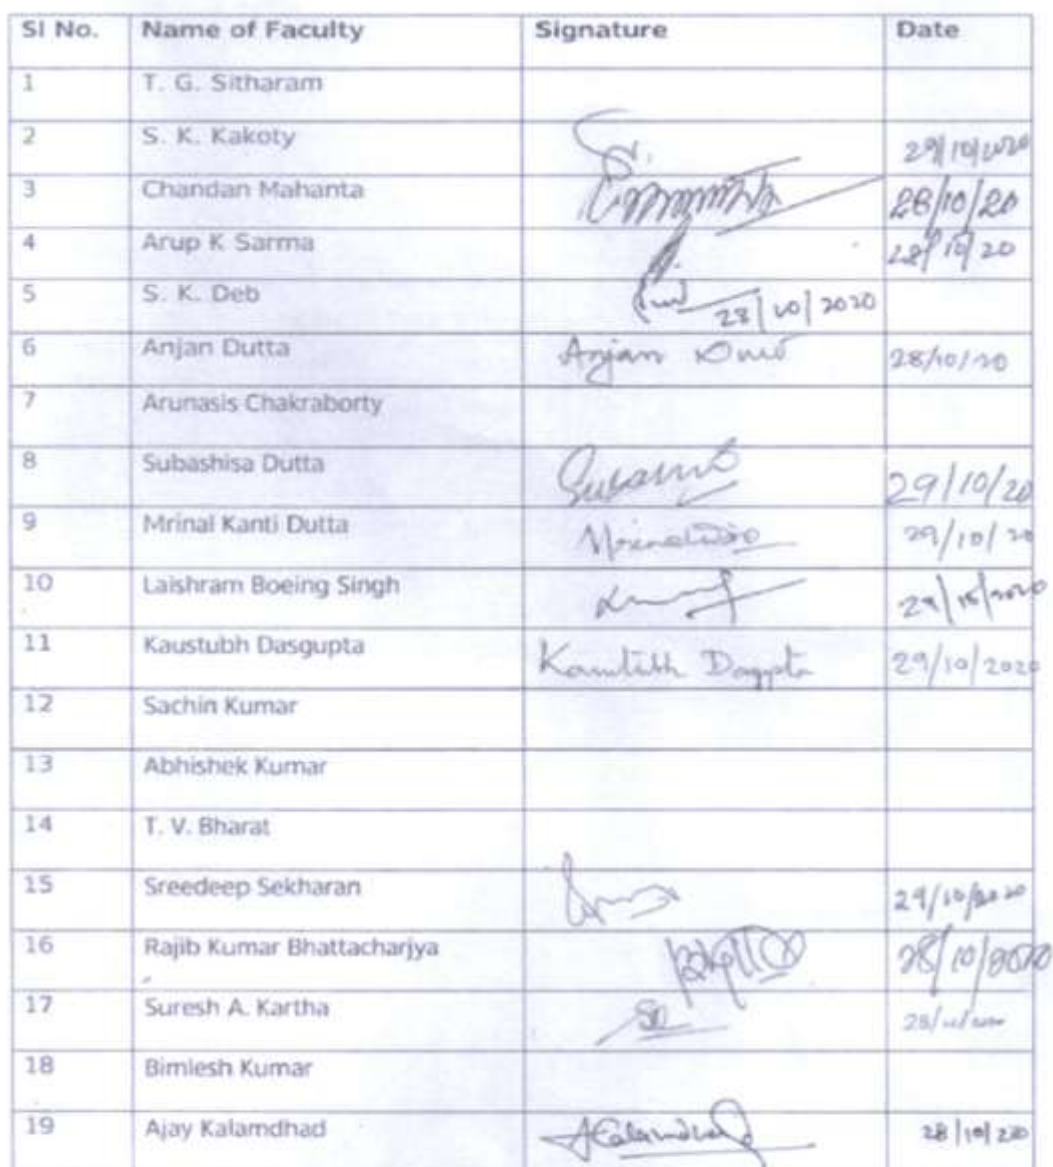 Sl No. Name of Faculty Signature Date
1 T. G. Sitharam
2 S. K. Kakoty 29/10/2020
3 Chandan Mahanta 28/10/20
4 Arup K Sarma 28/10/20
5 S. K. Deb 28/10/2020
6 Anjan Dutta Anjan Dutta 28/10/20
7 Arunasis Chakraborty
8 Subashisa Dutta 29/10/20
9 Mrinal Kanti Dutta 29/10/20
10 Laishram Boeing Singh 29/10/2020
11 Kaustubh Dasgupta Kaustubh Dasgupta 29/10/2020
12 Sachin Kumar
13 Abhishek Kumar
14 T. V. Bharat
15 Sreedeep Sekharan 29/10/2020
16 Rajib Kumar Bhattacharjya 28/10/2020
17 Suresh A. Kartha
18 Bimlesh Kumar
19 Ajay Kalamdhad AKalamdhad